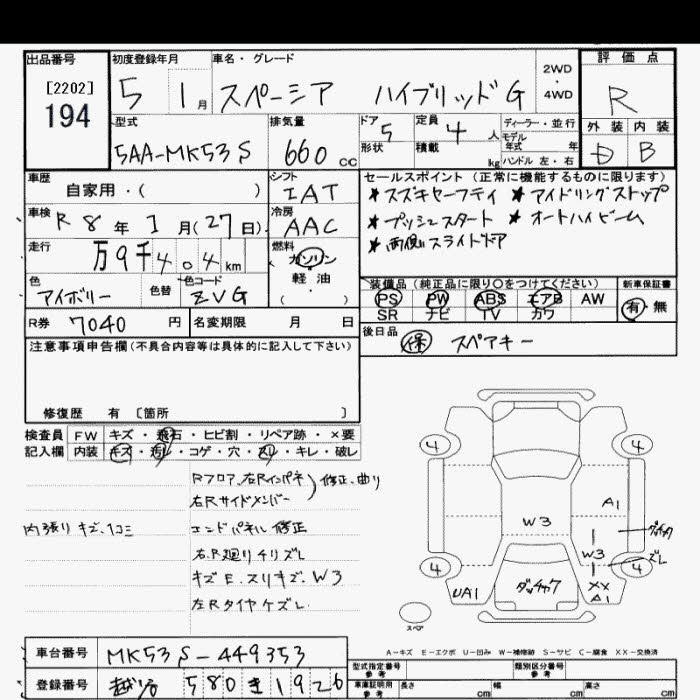 出品番号
[2202]
194
初度登録年月
5 1月
車名・グレード
スペーシア ハイブリッドG
2WD
・
4WD
評価点
R
外装 内装
D B
型式
5AA-MK53S
排気量
660 cc
ドア 5
形状
定員 4 人
積載 kg
ディーラー・並行
モデル
年式 年
ハンドル 左・右
車歴
自家用・( )
シフト
IAT
車検 R8年1月(27日)
冷房
AAC
走行 万9千404km
燃料
ガソリン
軽油
・
( )
色
アイボリー
色替
色コード
ZVG
セールスポイント (正常に機能するものに限ります)
★スズキセーフティ ★アイドリングストップ
★プッシュスタート ★オートハイビーム
★両側スライドドア
装備品 (純正品に限り○をつけてください)
PS PW ABS エアB AW
SR ナビ TV カワ
新車保証書
有・無
R券 7040円
名変期限 月 日
後日品
保 スペアキー
注意事項申告欄(不具合内容等は具体的に記入して下さい)
修復歴 有 〔箇所 〕
検査員
記入欄
FW キズ・飛石・ヒビ割・リペア跡・×要
内装 キズ・汚レ・コゲ・穴・スレ・キレ・破レ
Rフロア、右Rインパネ
右Rサイドメンバー
修正、曲り
内張りキズ、1コミ
エンドパネル 修正
右R廻りチリズレ
キズE、スリキズ、W3
左Rタイヤケズレ
4 4
A1
W3
ダッチャク
W3
ズレ
4 4
UA1
ダッチャク
XX
A1
スペア
A-キズ E-エクボ U-凹み W-補修跡 S-サビ C-腐食 XX-交換済
車台番号 MK53S-449353
登録番号 580き1926
型式指定番号
参考
類別区分番号
参考
車庫証明用
参考
長さ cm
幅 cm
高さ cm